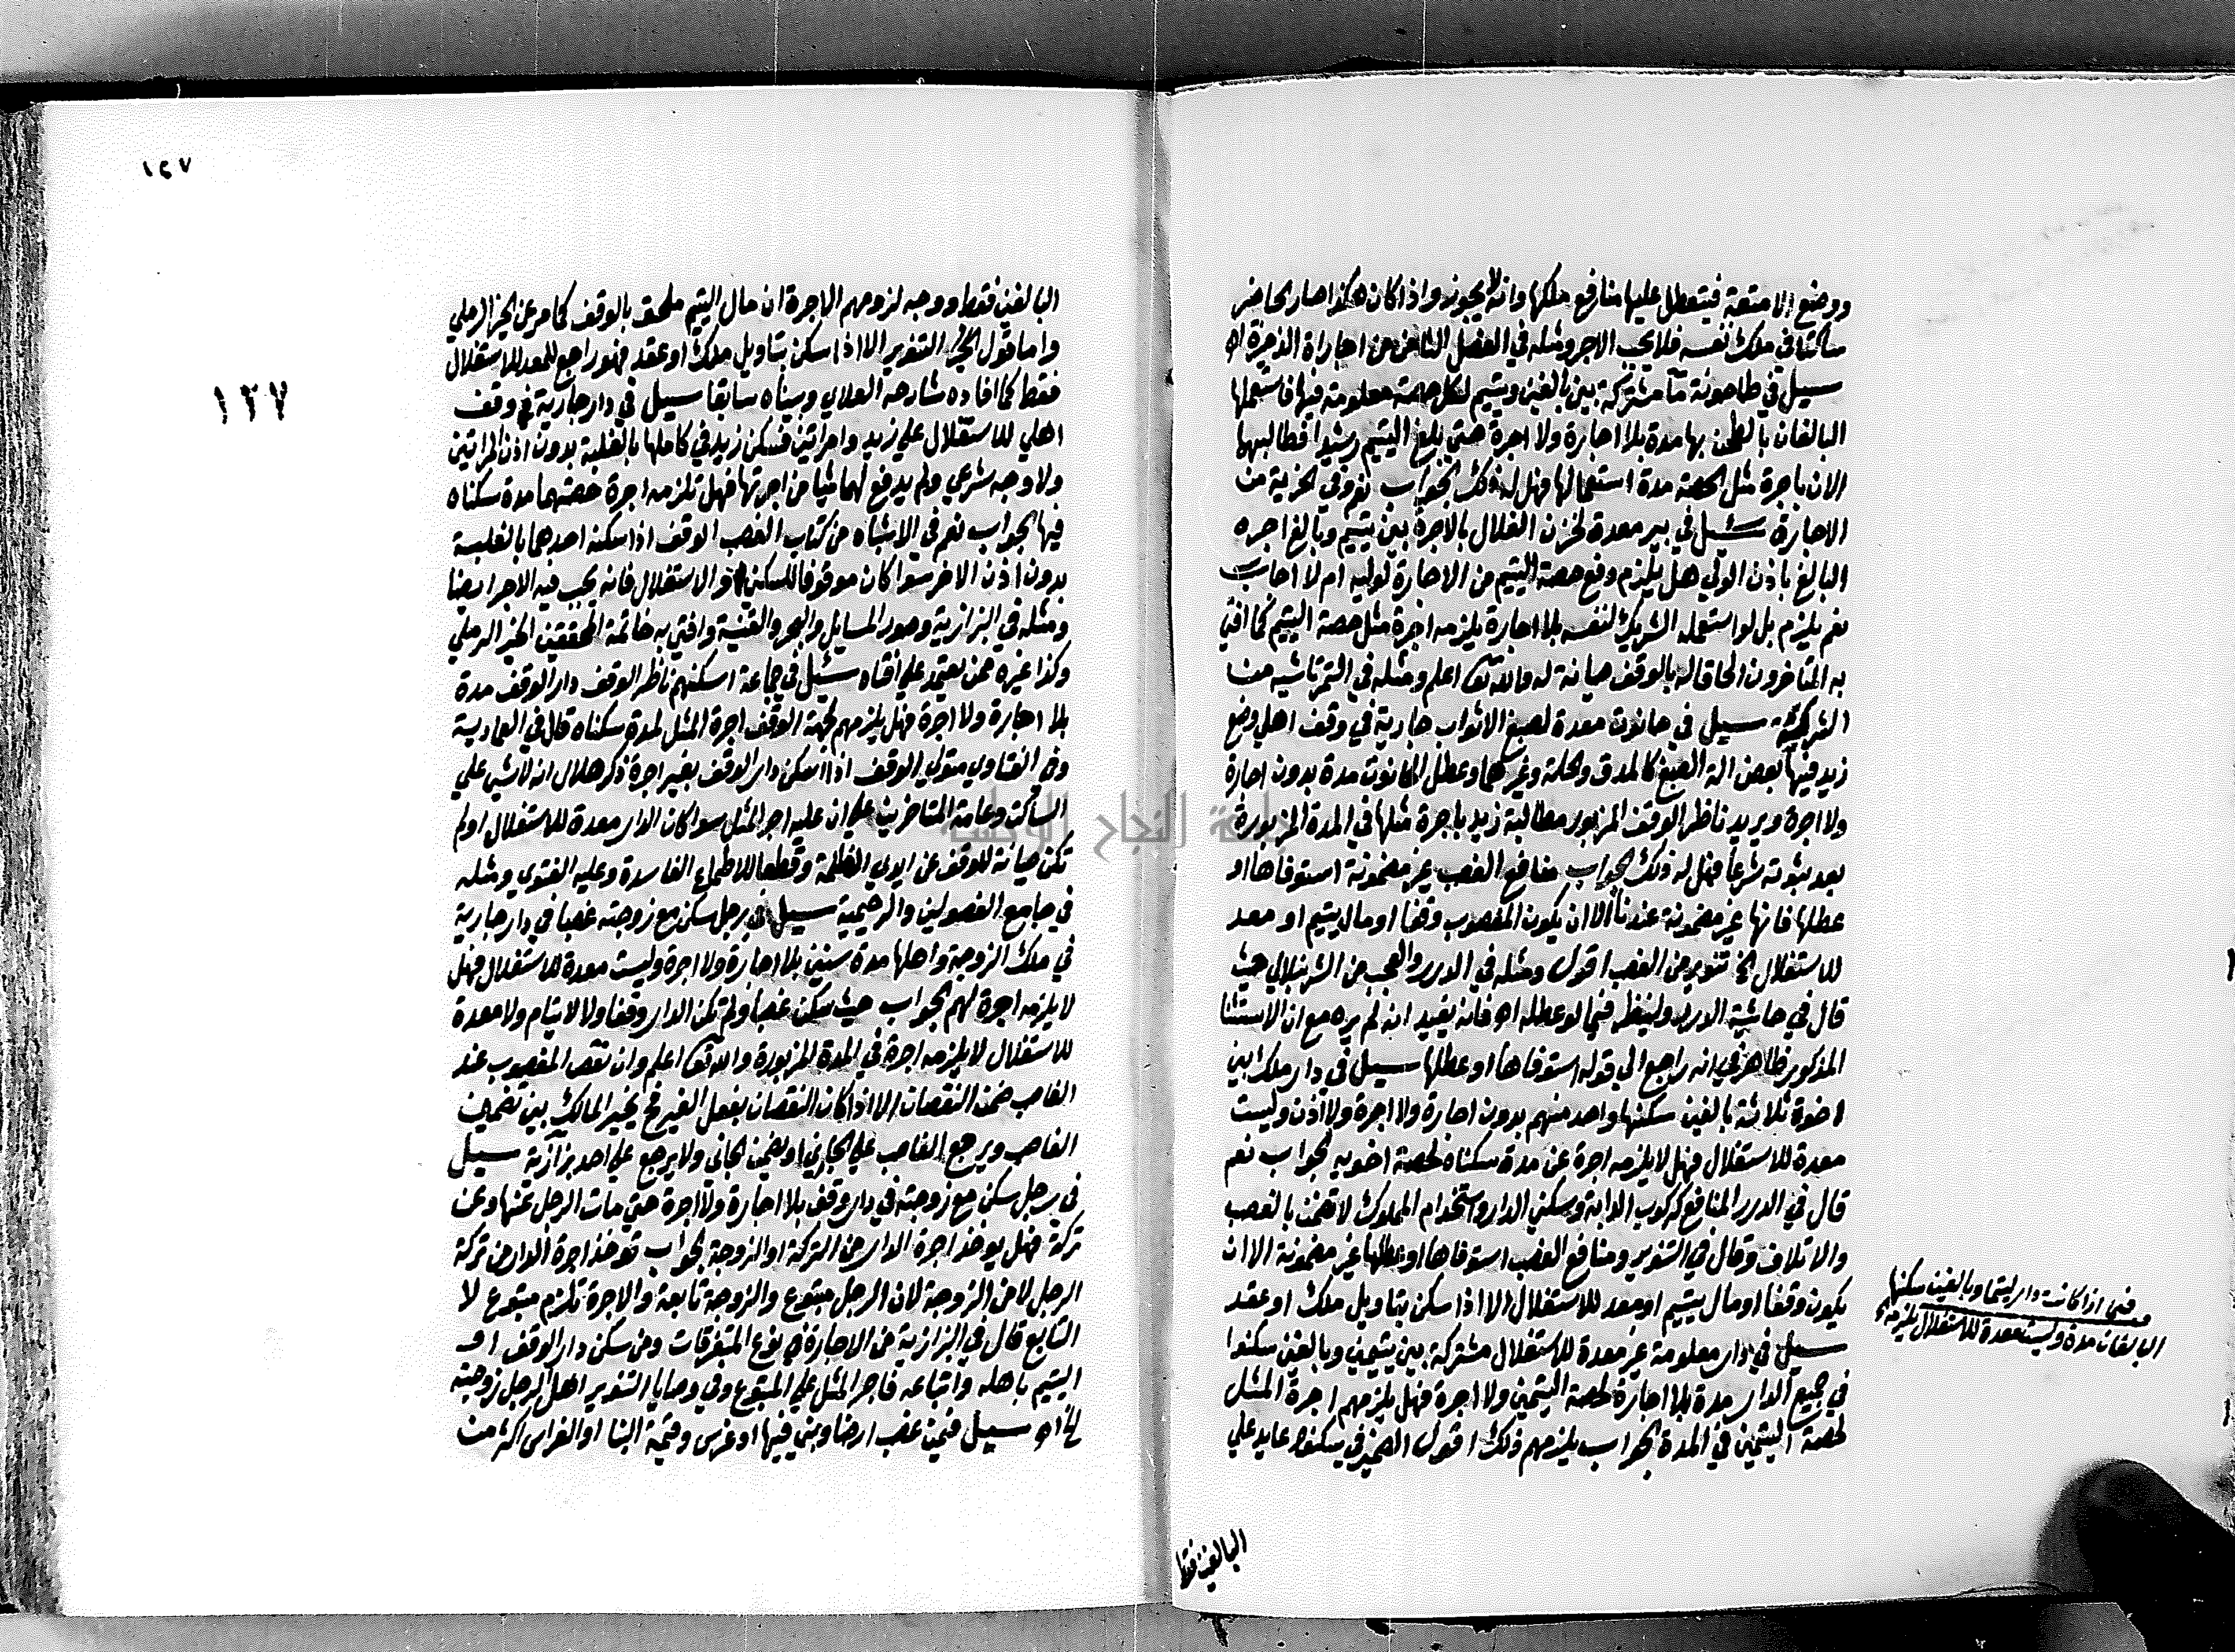 ووضع الامتعة فيتعطل عليها منافع ملكها وانه لا يجوز واذا كان هكذا صار الحاضر
ساكنا في ملك نفسه فلا يجب الاجر ومثله في الفصل الثامن من اجارة الذخيرة اه
سيل في طاحونة ما مشتركة بين بالغين ويتيم لكل حصة معلومة فيها فاستعملها
البالغان بالطحن بها مدة بلا اجارة ولا اجرة حتى بلغ اليتيم رشيدا فطالبهما
الان باجرة مثل الحصة مدة استعمالها فهل له ذلك الجواب نعم وفي الخيرية من
الاجارة سئل في بير معدة لخزن الغلال بالاجرة بين يتيم وبالغ اجره
البالغ باذن الولي هل يلزم دفع حصة اليتيم من الاجارة لوليه ام لا اجاب
نعم يلزم بل لو استعمله الشريك لنفسه بلا اجارة يلزمه اجرة مثل حصة اليتيم كما افتى
به المتاخرون الحاقا له بالوقف صيانة له والله تعا اعلم ومثله في التمرتاشيه من
الشركة سيل في حانوت معدة لصبغ الاثواب جارية في وقف اهلي وضع
زيد فيها بعض الة الصبغ كالمدق والحلة وغيرهما وعطل الحانوت مدة بدون اجارة
ولا اجرة ويريد ناظر الوقف المزبور مطالبة زيد باجرة مثلها في المدة المزبورة
بعد ثبوته شرعا فهل له ذلك الجواب منافع الغصب غير مضمونة استوفاها او
عطلها فانها غير مضمونة عندنا الا ان يكون المغصوب وقفا او مال يتيم او معد
للاستغلال الخ تنوير من الغصب اقول ومثله في الدرر والعجب من الشرنبلالي حيث
قال في حاشية الدرر ولينظر فيما لو عطله اه فانه يفيد انه لم يره مع ان الاستثنا
المذكور ظاهر في انه راجع الى قوله استوفاها او عطلها سيل في دار ملك ابين
اخوة ثلاثة بالغين سكنها واحد منهم بدون اجارة ولا اجرة ولا اذن وليست
معدة للاستغلال فهل لا يلزمه اجرة عن مدة سكناه لحصة اخويه الجواب نعم
قال في الدرر المنافع كركوب الدابة وسكني الدار واستخدام المملوك لا تضمن بالغصب
والاتلاف وقال في التنوير ومنافع الغصب استوفاها او عطلها غير مضمونة الا ان
يكون وقفا او مال يتيم او معد للاستغلال الا اذا سكن بتاويل ملك او عقد
سيل في دار معلومة غير معدة للاستغلال مشتركة بين يتيمين وبالغين سكنوا
في جميع الدار مدة بلا اجارة لحصة اليتيمين ولا اجرة فهل يلزمهم اجرة المثل
لحصة اليتيمين في المدة الجواب يلزمهم ذلك اقول الضمير في سكنوا عايد علي
وفي اذا كانت دار ليتيم وبالغين سكنها
البالغان مدة وليست معدة للاستغلال يلزمه
البالغين فقط
١٤٧
١٢٧
البالغين فقط ووجه لزومهم الاجرة ان مال اليتيم ملحق بالوقف كما مر عن الخير الرملي
واما قول التنوير الا اذا سكن بتاويل ملك او عقد فهو راجع للمعد للاستغلال
فقط كما افاده شارحه العلاي وبيناه سابقا سيل في دار جارية في وقف
اهلي للاستغلال علي زيد وامراتين فسكن زيد في كاملها بالغلبة بدون اذن المراتين
ولا وجه شرعي ولم يدفع لهما شيا من اجرتها فهل تلزمه اجرة حصتهما مدة سكناه
فيها الجواب نعم في الاشباه من كتاب الغصب الوقف اذا سكنه احدهما بالغلبة
بدون اذن الاخر سوا كان موقوفا للسكنى او الاستغلال فانه يجب فيه الاجر ايضا
ومثله في البزازية وصور المسايل والبحر والقنية وافتي به خاتمة المحققين الخير الرملي
وكذا غيره ممن يعتمد علي افتاه سئل في جماعة اسكنهم ناظر الوقف دار الوقف مدة
بلا اجارة ولا اجرة فهل يلزمهم لجهة الوقف اجرة المثل لمدة سكناه قال في العمادية
وفي الفتاوي متولي الوقف اذا اسكن دار الوقف بغير اجرة ذكر هلال انه لا شي علي
الساكن وعامة المتاخرين علي ان عليه اجر المثل سوا كان الدار معدة للاستغلال او لم
تكن صيانة للوقف عن ايدي الظلمة وقطعا للاطماع الفاسدة وعليه الفتوي ومثله
في جامع الفصولين والرحيمية سيل في رجل سكن مع زوجته غصبا في دار جارية
في ملك الزوجة واهلها مدة سنين بلا اجارة ولا اجرة وليست معدة للاستغلال فهل
لا يلزمه اجرة لهم الجواب حيث سكن غصبا ولم تكن الدار وقفا ولا لايتام ولا معدة
للاستغلال لا يلزمه اجرة في المدة المزبورة والله تعا اعلم وان نقص المغصوب عند
الغاصب ضمن النقصان الا اذا كان النقصان بفعل الغير فح يخير المالك بين تضمين
الغاصب ويرجع الغاصب علي الجاني او يضمن الجاني ولا يرجع علي احد بزازية سيل
في رجل سكن مع زوجته في دار وقف بلا اجارة ولا اجرة حتي مات الرجل عنها وعن
تركة فهل يوخذ اجرة الدار من التركة او الزوجة الجواب توخذ اجرة الدار من تركة
الرجل لا من الزوجة لان الرجل متبوع والزوجة تابعة والاجرة تلزم متبوع لا
التابع قال في البزازية من الاجارة في نوع المتفرقات ومن سكن دار الوقف او
اليتيم باهله واتباعه فاجر المثل علي المتبوع وفي وصايا التنوير اهل الرجل زوجته
الخ اه سيل فيمن غصب ارضا وبنى فيها او غرس وقيمة البنا او الغراس اكثر من